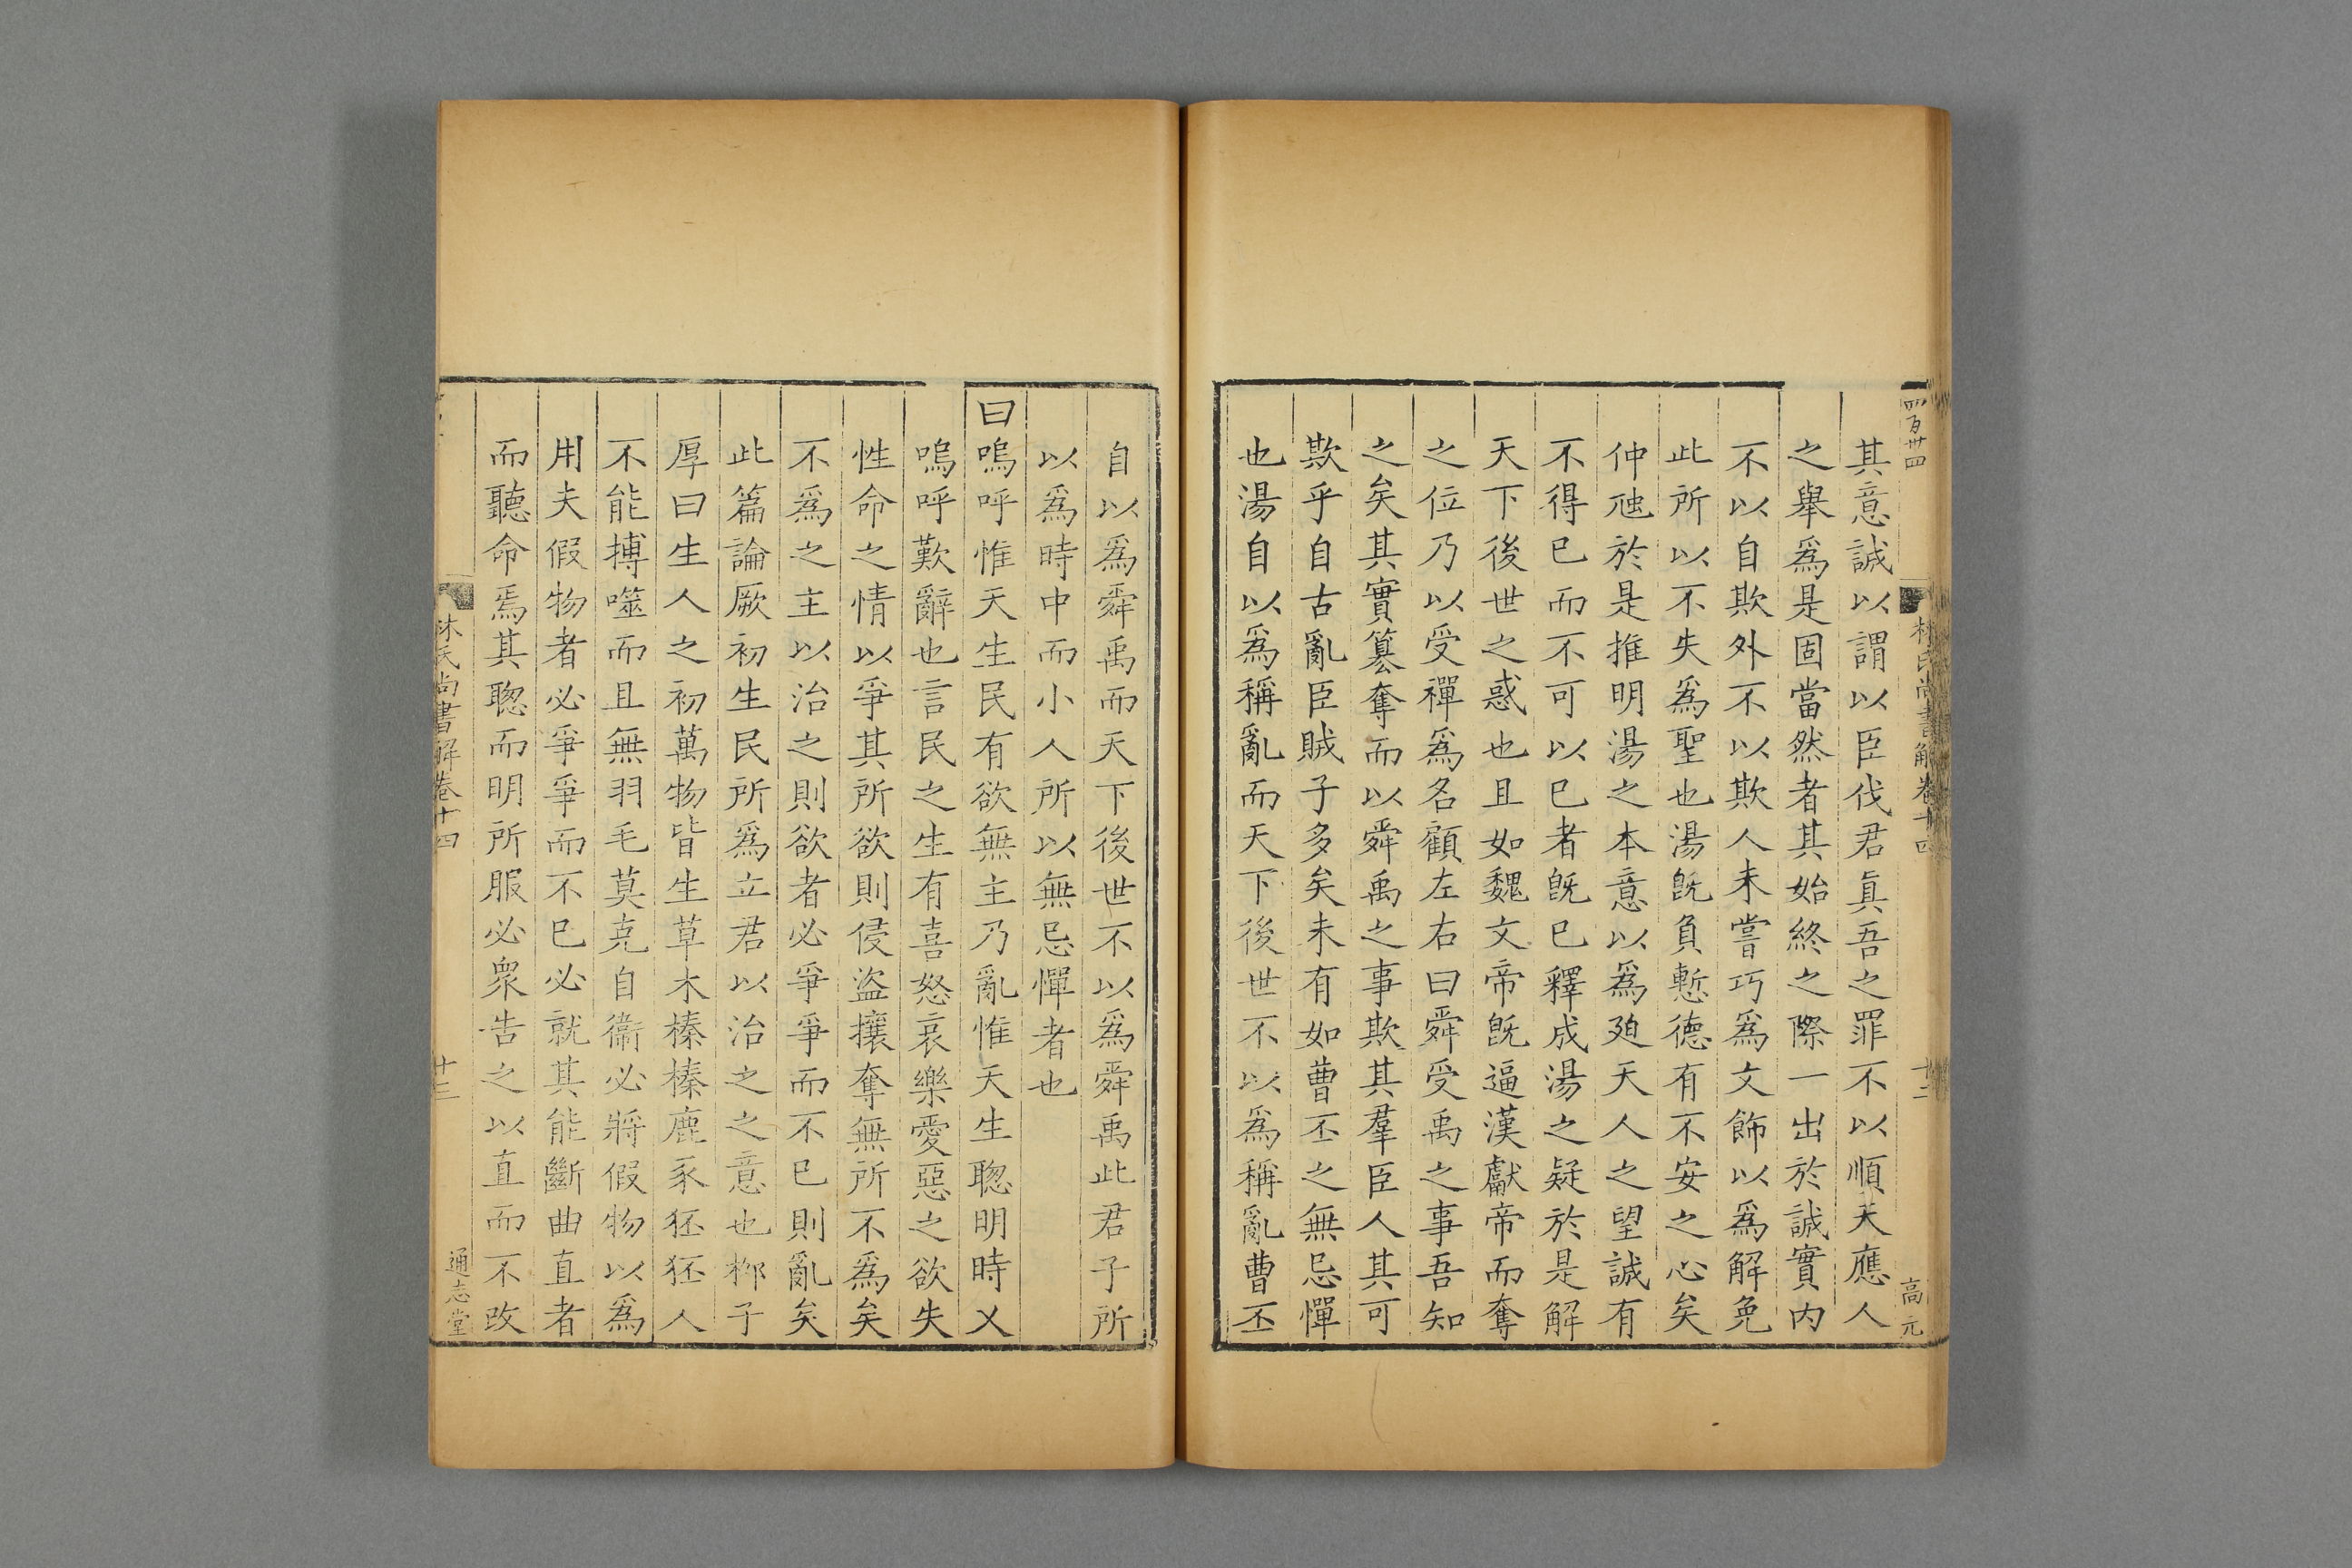 四百卅四
林氏尚書解卷十四
十二
高元
其意誠以謂以臣伐君眞吾之罪不以順天應人
之舉爲是固當然者其始終之際一出於誠實内
不以自欺外不以欺人未嘗巧爲文飾以爲解免
此所以不失爲聖也湯旣負慙德有不安之心矣
仲虺於是推明湯之本意以爲廹天人之望誠有
不得已而不可以已者旣已釋成湯之疑於是解
天下後世之惑也且如魏文帝旣逼漢獻帝而奪
之位乃以受禪爲名顧左右曰舜受禹之事吾知
之矣其實簒奪而以舜禹之事欺其羣臣人其可
欺乎自古亂臣賊子多矣未有如曹丕之無忌憚
也湯自以爲稱亂而天下後世不以爲稱亂曹丕
自以爲舜禹而天下後世不以爲舜禹此君子所
以爲時中而小人所以無忌憚者也
曰嗚呼惟天生民有欲無主乃亂惟天生聰明時乂
嗚呼歎辭也言民之生有喜怒哀樂愛惡之欲失
性命之情以爭其所欲則侵盜攘奪無所不爲矣
不爲之主以治之則欲者必爭爭而不已則亂矣
此篇論厥初生民所爲立君以治之之意也栁子
厚曰生人之初萬物皆生草木榛榛鹿豕狉狉人
不能搏噬而且無羽毛莫克自衞必將假物以爲
用夫假物者必爭爭而不已必就其能斷曲直者
而聽命焉其聰而明所服必衆告之以直而不改
林氏尚書解卷十四
十三
通志堂